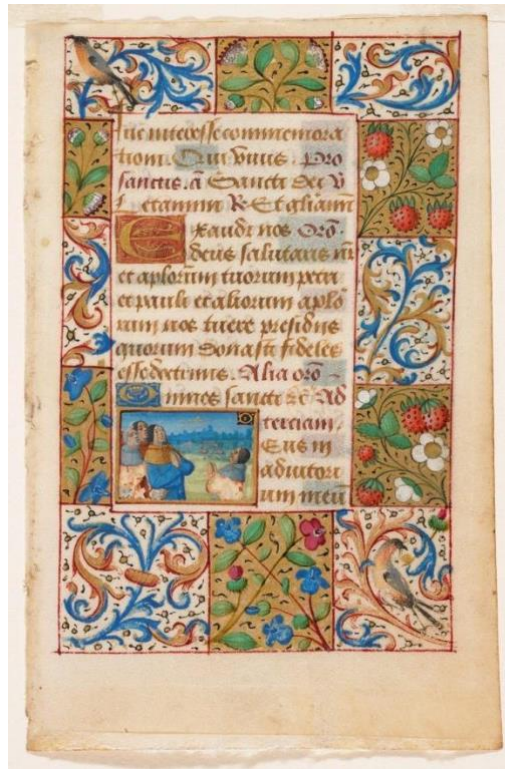 ne interesse commemora
tione. Qui vivis. Oro
sanctis. a Sancti dei v
etamini R Et gliamī
Exaudi nos Orō.
deus salutaris nr̄
et aplorum tuorum petri
et pauli et aliorum aplo
rum nos tuere presidiis
quorum donasti fideles
esse doctrinis. Alia oro
Omnes sancti &c Ad
terciam.
Deus in
adiutori
um meū